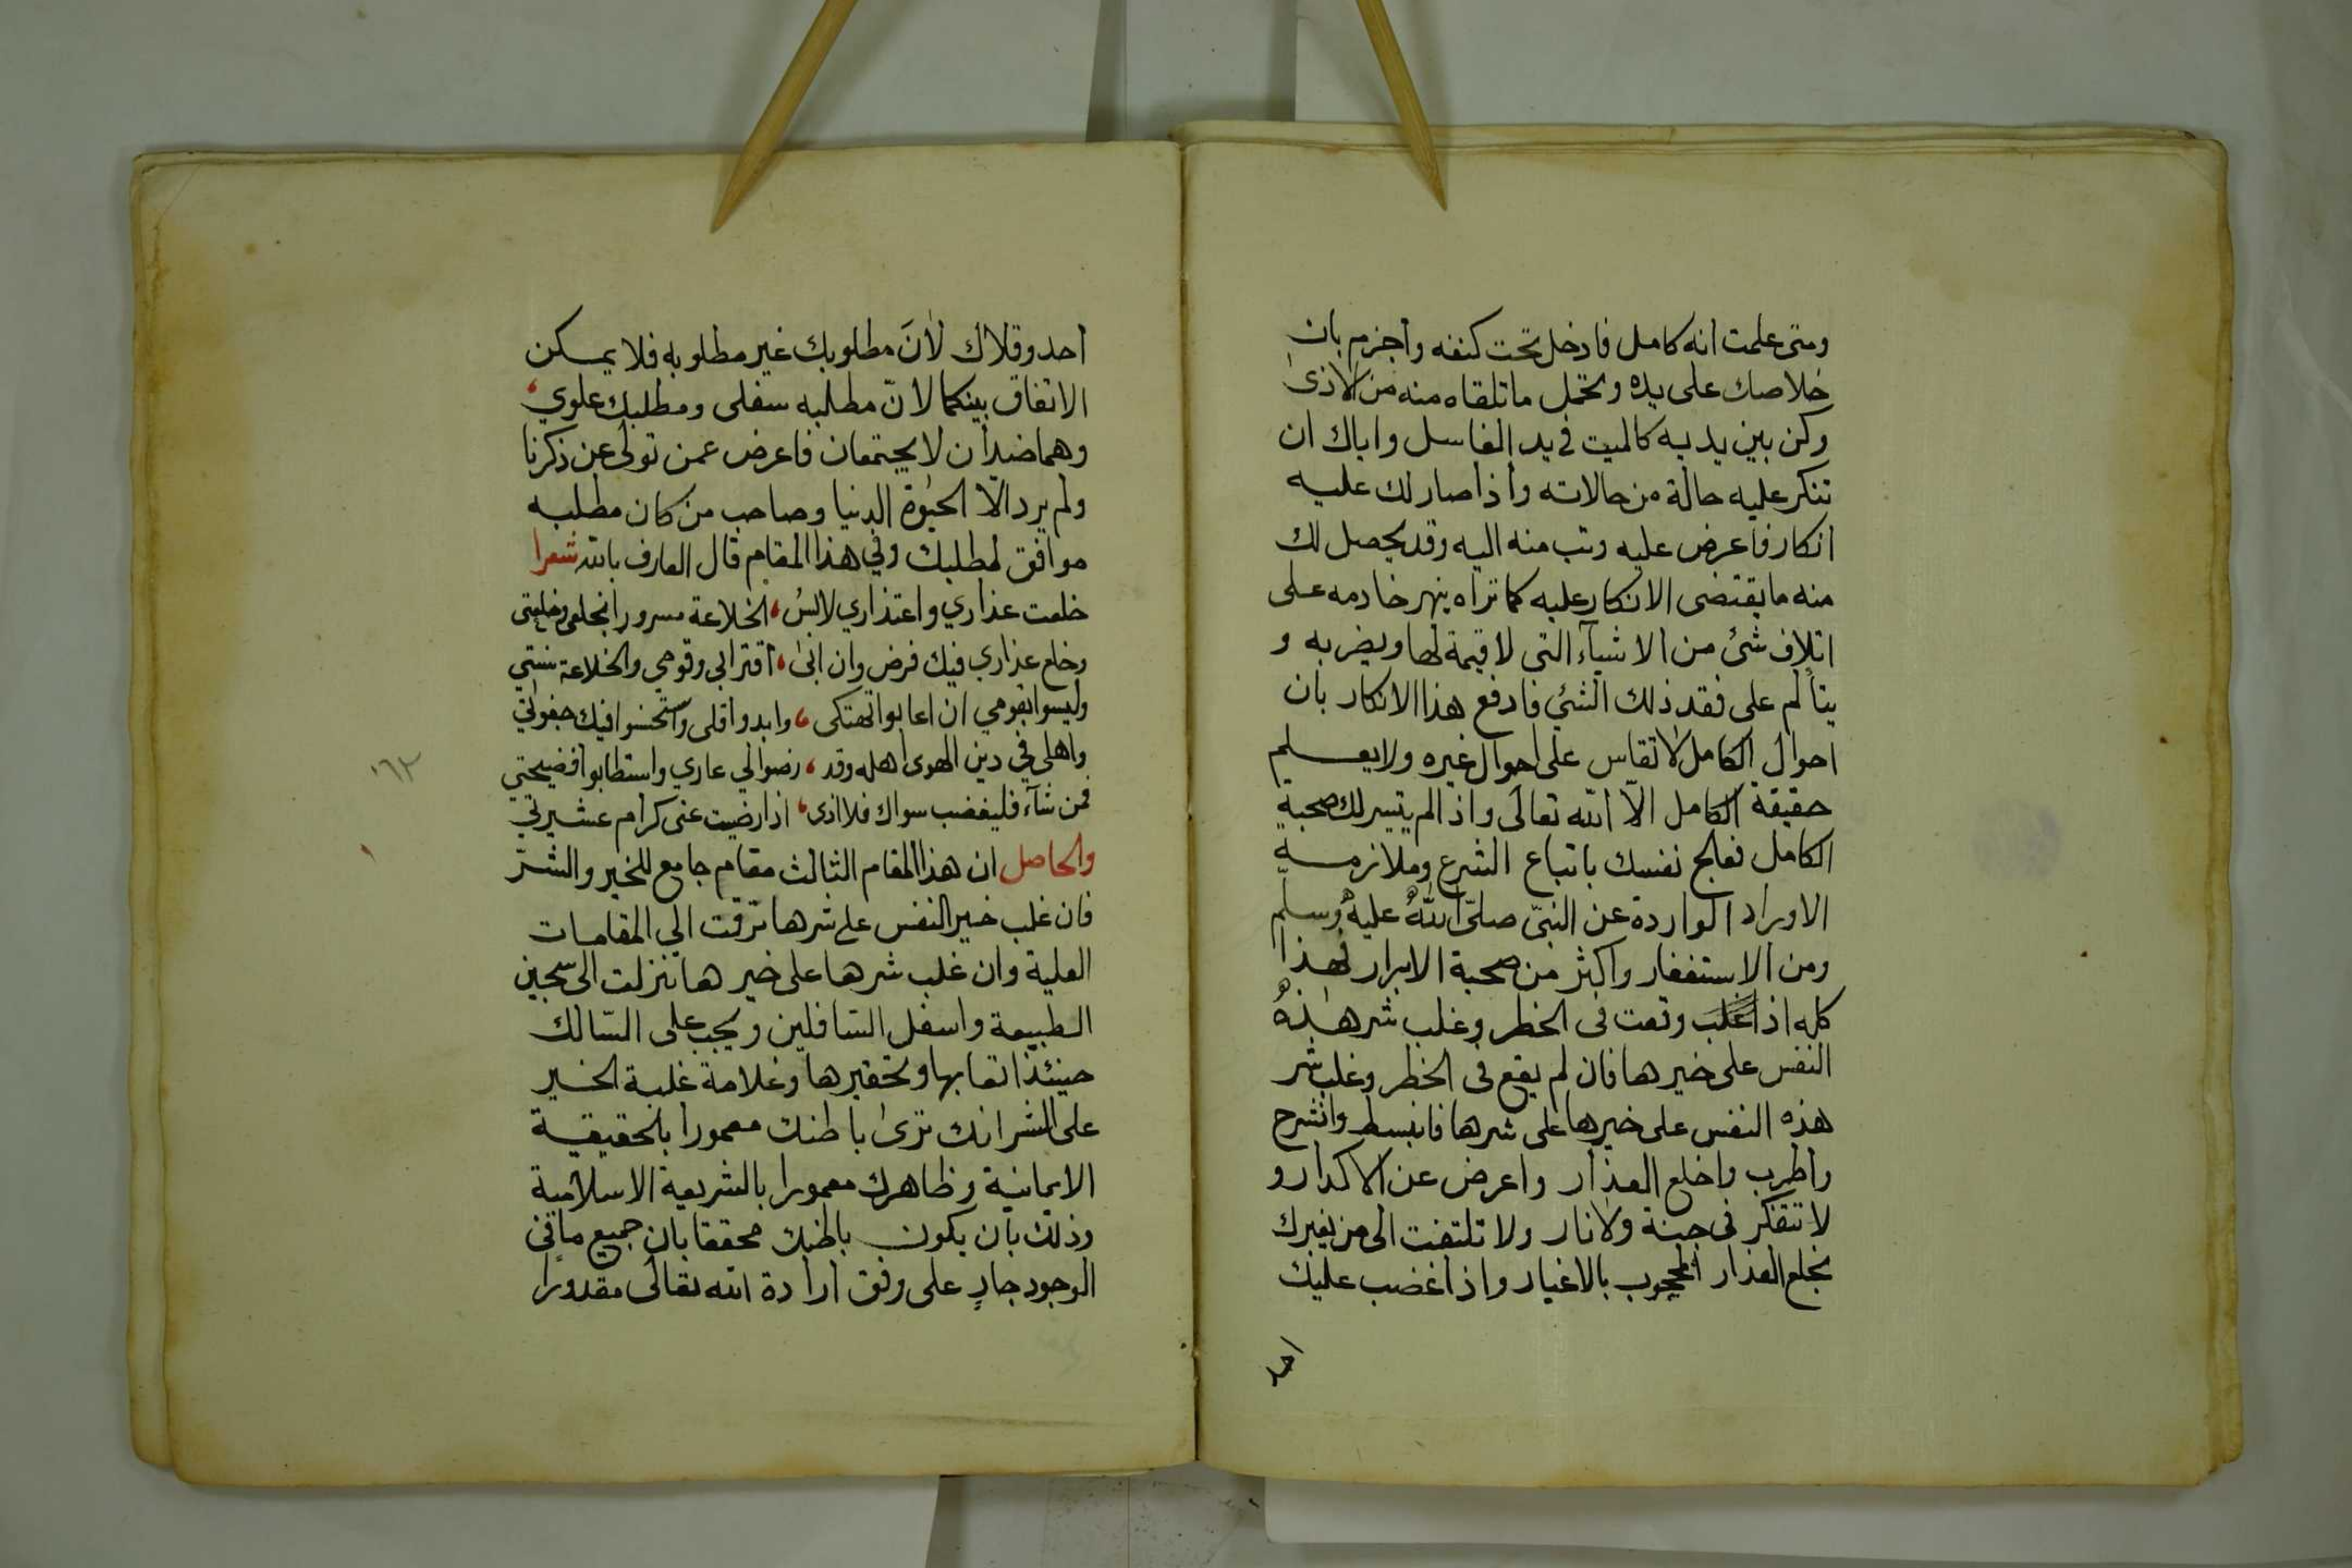 ومتى علمت انه كامل فادخل تحت كنفه واجزم بان
خلاصك على يده وتحمل ما تلقاه منه من الاذى
وكن بين يديه كالميت في يد الغاسل واياك ان
تنكر عليه حالة من حالاته واذا صار لك عليه
انكار فاعرض عليه وتب منه اليه وقد يحصل لك
منه ما يقتضى الانكار عليه كما تراه ينهر خادمه على
اتلاف شئ من الاشيآء التى لا قيمة لها ويضربه و
يتألم على فقد ذلك الشئ فادفع هذا الانكار بان
احوال الكامل لا تقاس على احوال غيره ولا يعلم
حقيقة الكامل الّا الله تعالى واذا لم يتيسر لك صحبة
الكامل فعالج نفسك باتباع الشرع وملازمة
الاوراد الواردة عن النبىّ صلىّ اللهُ عليهُ وسلم
ومن الاستغفار واكثر من صحبة الابرار فهذا
كله اذا وقعت فى الخطر وغلب شر هذهُ
النفس على خيرها فان لم يقع فى الخطر وغلب شر
هذه النفس على خيرها على شرها فانبسط وانشرح
واطرب واخلع العذار واعرض عن الاكدار و
لا تتفكر فى جنة ولا نار ولا تلتفت الى من يغيرك
بخلع العذار المحجوب بالاغيار واذا غضب عليك
احد
احد وقلاك لأنَ مطلوبك غير مطلوبه فلا يمكن
الاتفاق بينكما لانّ مطلبه سفلى ومطلبك علوي،
وهما ضدان لا يجتمعان فاعرض عمن تولى عن ذكرنا
ولم يرد الّا الحيوة الدنيا وصاحب من كان مطلبه
موافق لمطلبك وفي هذا المقام قال العارف بالله شعرا
خلعت عذاري واعتذاري لابس، الخلاعة مسرورا بخلعى وخلعتى
وخلع عذاري فيك فرض وان ابىٰ، اقترابي وقومي والخلاعة سنتي
وليسوا بقومي ان اعابوا تهتكى، وابدوا قلى واستحسنوا فيك جفوتي
واهلى في دين الهوى اهله وقد، رضوا لي عاري واستطابوا فضيحتي
فمن شآء فليغضب سواك فلا اذى، اذا رضيت عنى كرام عشيرتي
والحاصل ان هذا المقام الثالث مقام جامع للخير والشرّ
فان غلب خير النفس على شرها ترقت الي المقامات
العلية وان غلب شرها على خيرها تنزلت الى سجين
الطبيعة واسفل السّافلين ويجب على السّالك
حينئذ اتعابها وتحقيرها وعلامة غلبة الخير
على الشر انك ترىٰ باطنك معمورا بالحقيقة
الايمانية وظاهرك معمورا بالشريعة الاسلامية
وذلك بان يكون باطنك محققا بان جميع ما في
الوجود جارٍ على وفق ارادة الله تعالى مقدورا
١٦٢